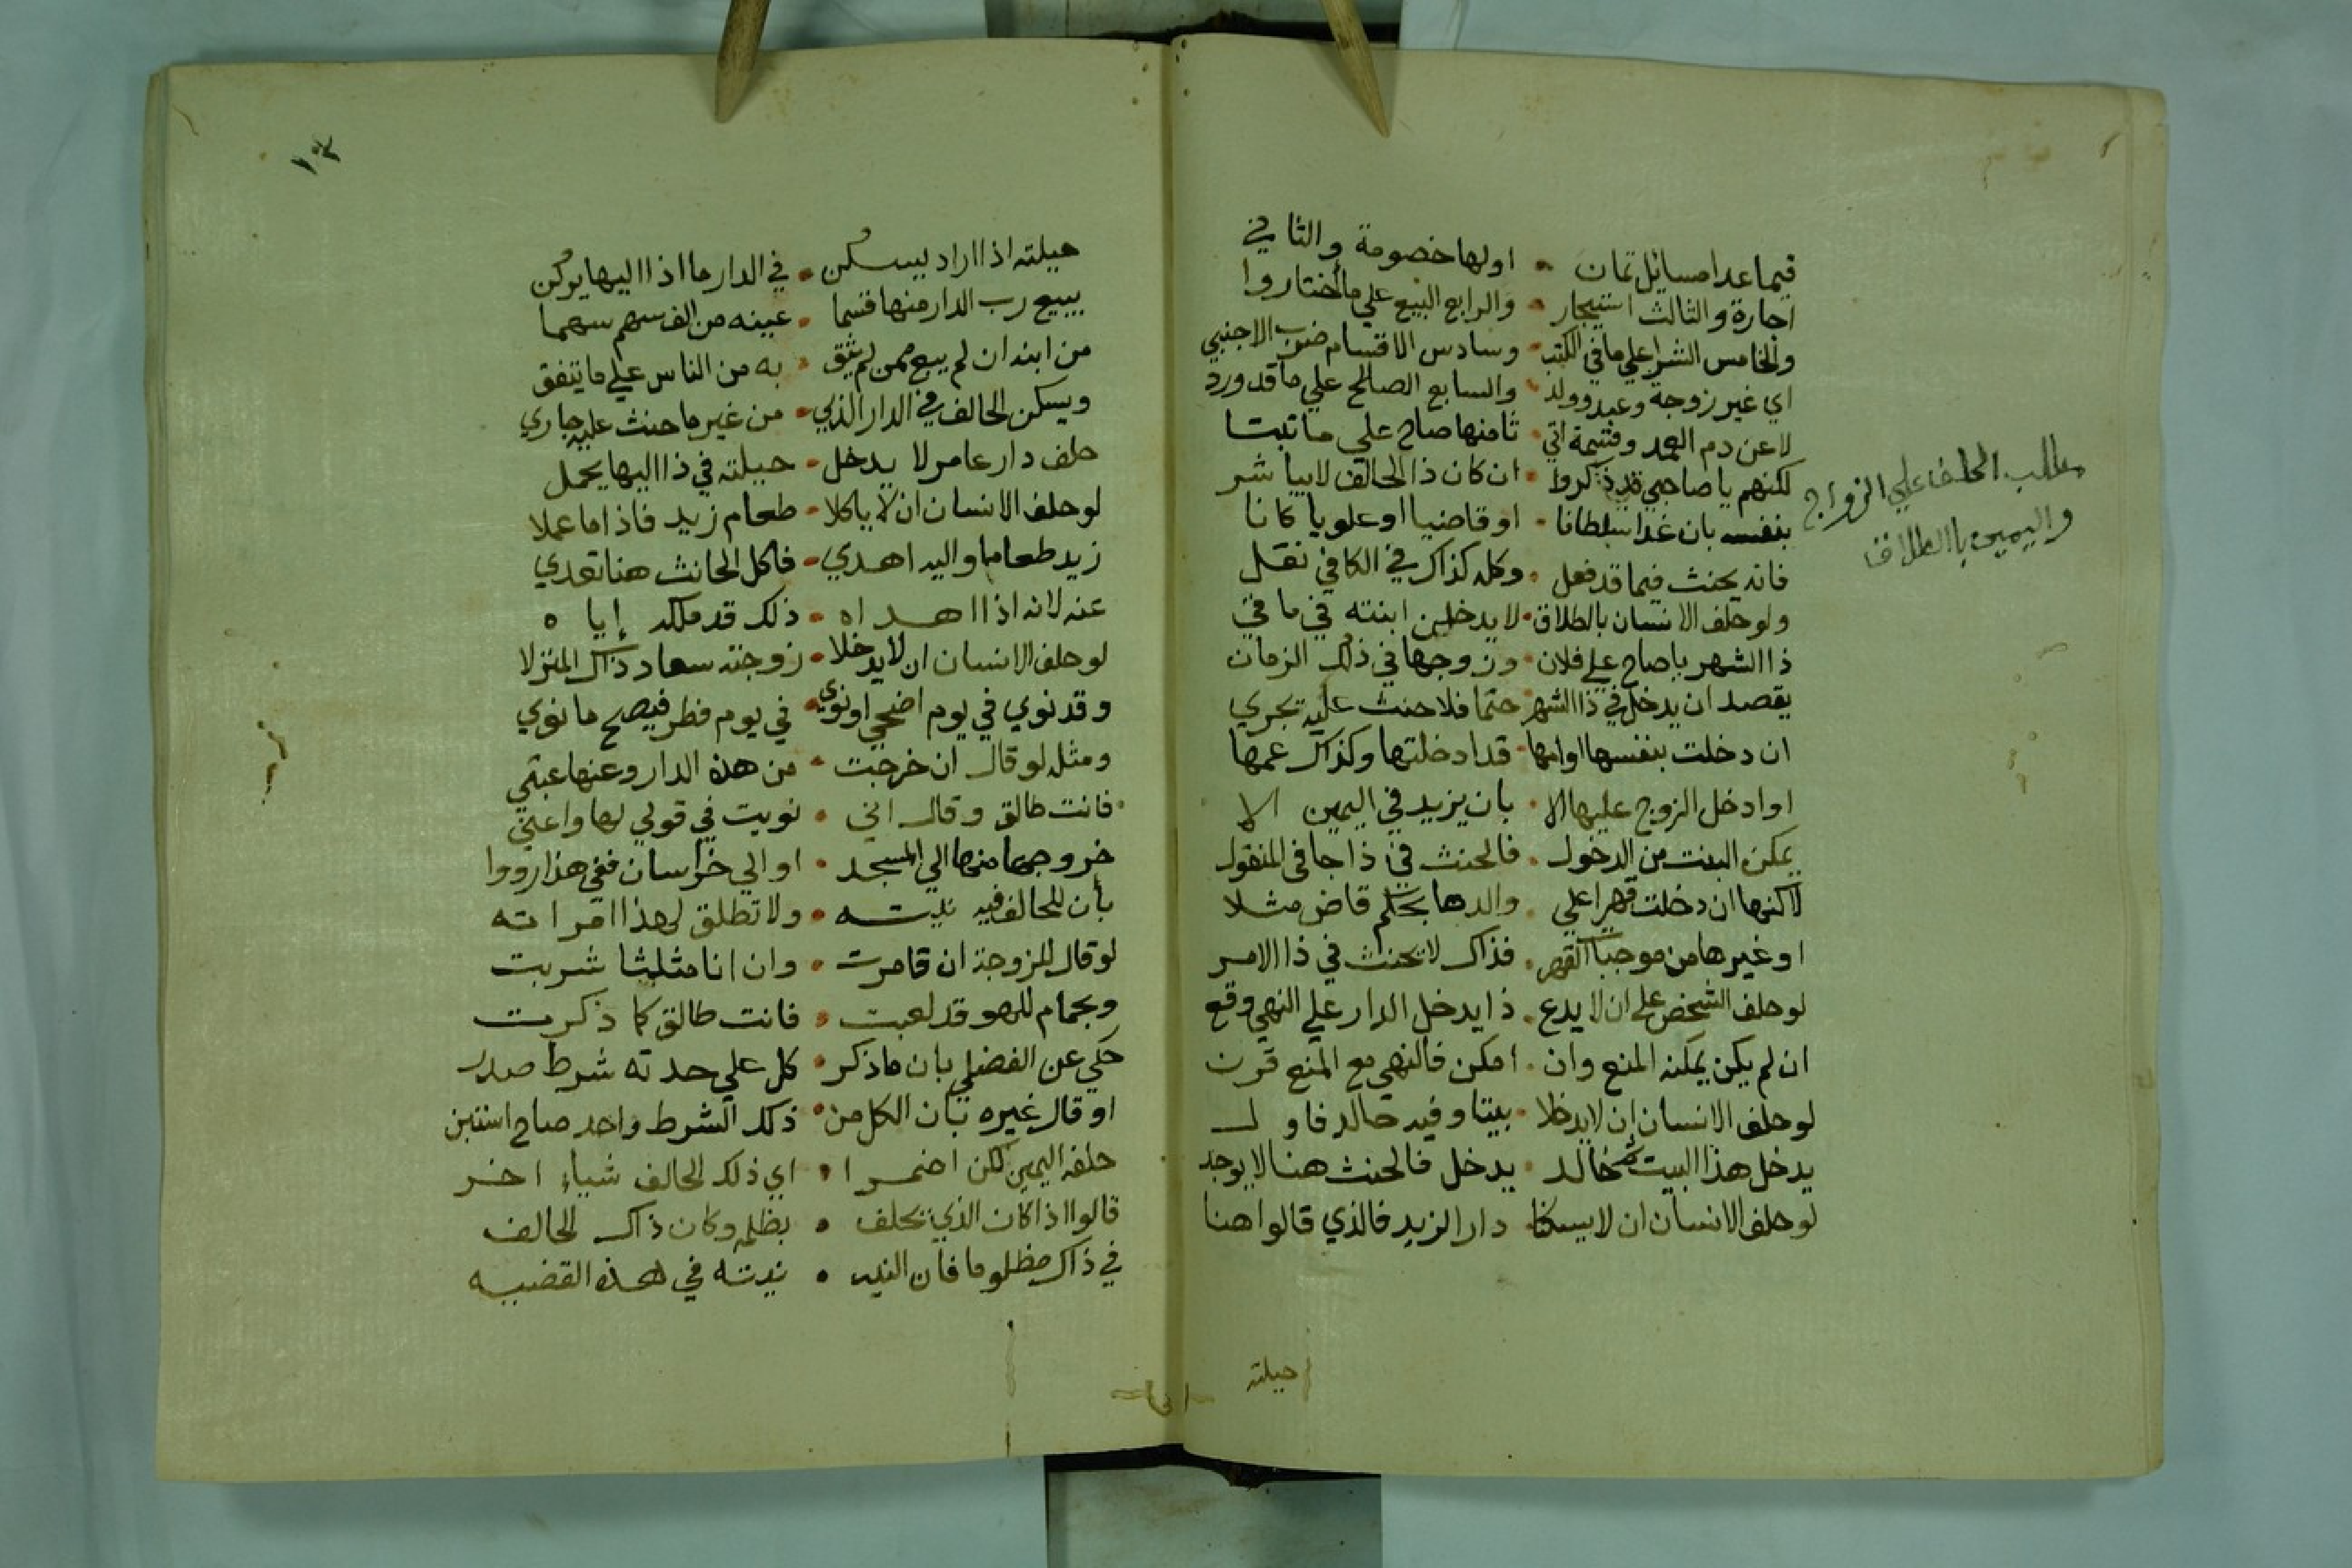 فيما عدا مسايل ثمان • اولها خصومة والثاني
اجارة والثالث استيجار • والرابع البيع علي ما اختاروا
والخامس الشرا علي ما في الكتب • وسادس الاقسام ضرب الاجنبي
اي غير زوجة وعبد وولد • والسابع الصالح علي ما قد ورد
لا عن دم العمد وقسمة اتي • ثامنها صاح علي ما ثبتا
لكنهم يا صاحبي قد ذكروا • ان كان ذا الحالف لا يباشر
بنفسه بان غدا سلطانا • او قاضيا او علويا كانا
فانه يحنث فيما قد فعل • وكله كذاك في الكافي نقل
ولو حلف الانسان بالطلاق • لا يدخلن ابنته في ما في
ذا الشهر يا صاح علي فلان • وزوجها في ذلك الزمان
يقصد ان يدخل في ذا الشهر • حتما فلا حنث عليه تجري
ان دخلت بنفسها او امها • قد ادخلتها وكذاك عمها
او ادخل الزوج عليها الا • بان يزيد في اليمين الا
يمكن البنت من الدخول • فالحنث في ذا جا في المنقول
لاكنها ان دخلت قهرا علي • والدها بحكم قاض مثلا
او غيرها من موجبات القهر • فذاك لا يحنث في ذا الامر
لو حلف الشخص علي ان لا يدع • ذا يدخل الدار علي النهي وقع
ان لم يكن يمكنه المنع وان • امكن فالنهي مع المنع قرن
لو حلف الانسان ان لا يدخلا • بيتا وفيه خالد فاو لـ
يدخل هذا البيت ثم خالد • يدخل فالحنث هنا لا يوجد
لو حلف الانسان ان لا يسكنا • دارا لزيد فالذي قالوا هنا
حيلته
مطلب الحلف علي الزواج
واليمين بالطلاق
١٣
حيلته اذا اراد يسكن • في الدار ما اذا اليها يركن
يبيع رب الدار منها قسما • عينه من الف سهم سهما
من ابنه ان لم يبع ممن لم يثق • به من الناس علي ما يتفق
ويسكن الحالف في الدار الذي • من غير ما حنث عليه جاري
حلف دار عامر لا يدخل • حيلته في ذا اليها يحمل
لو حلف الانسان ان لا ياكلا • طعام زيد فاذا ما عملا
زيد طعاما واليه اهدي • فاكل الحانث هنا تعدي
عنه لانه اذا اهداه • ذلك قد ملكه إياه
لو حلف الانسان ان لا يدخلا • زوجته سعاد ذاك المنزلا
وقد نوي في يوم اضحي او نوي • في يوم فطر فيصح ما نوي
ومثله لو قال ان خرجت • من هذه الدار وعنها غبتي
فانت طالق وقال اني • نويت في قولي لها واعني
خروجها منها الي المسجد • او الي خراسان ففي هذا رووا
بأن للحالف فيه نيته • ولا تطلق لهذا امراته
لو قال للزوجة ان قامرت • وان انا مثلثا شربت
وبحمام للهو قد لعبت • فانت طالق كما ذكرت
حكي عن الفضلي بان ما ذكر • كل علي حدته شرط صدر
او قال غيره بان الكل من • ذلك الشرط واحد صاح استبن
حلفه اليمين لكن اضمرا • اي ذلك الحالف شياء اخر
قالوا اذا كان الذي تحلف • بظلمه وكان ذاك الحالف
في ذاك مظلوما فان النيه • نيته في هذه القضيه